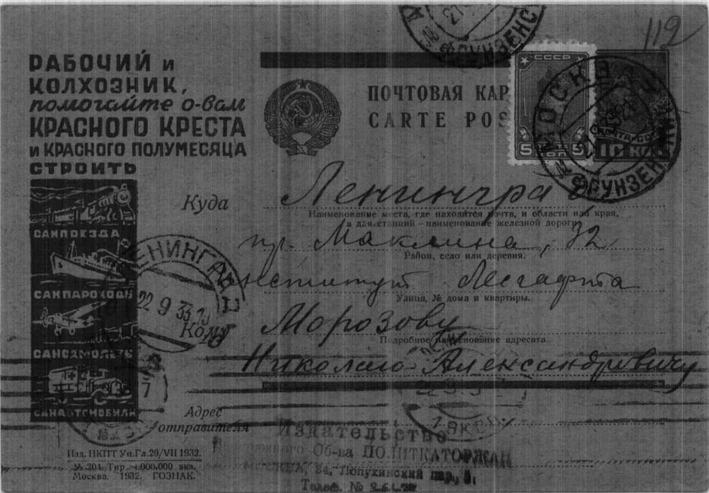 112
РАБОЧИЙ и
КОЛХОЗНИК,
помогайте о-вам
КРАСНОГО КРЕСТА
и КРАСНОГО ПОЛУМЕСЯЦА
СТРОИТЬ
САНПОЕЗДА
САНПАРОХОДЫ
САНСАМОЛЕТЫ
САНАВТОМОБИЛИ
ПОЧТОВАЯ КАР
CARTE POS
СССР
5 5
МОСКВА
ФРУНЗЕНС
Куда Ленингра
Наименование места, где находится почта, и области или края,
а для станций—наименование железной дороги.
пр. Маклина, 32
Район, село или деревня.
нститут Лесгафта
Улица, № дома и квартиры.
Кому Морозову
Подробное наименование адресата
Николаю Александровичу
ЛЕНИНГРАД
22 9 33
Адрес
отправителя
Издательство
Об-ва ПОЛИТКАТОРЖАН
Лопухинский пер, 5,
Телеф. №
Изд. НКПТ Уп.Гл.29/VII 1932.
№ 204. Тир. 4.000.000 экз.
Москва. 1932. ГОЗНАК.